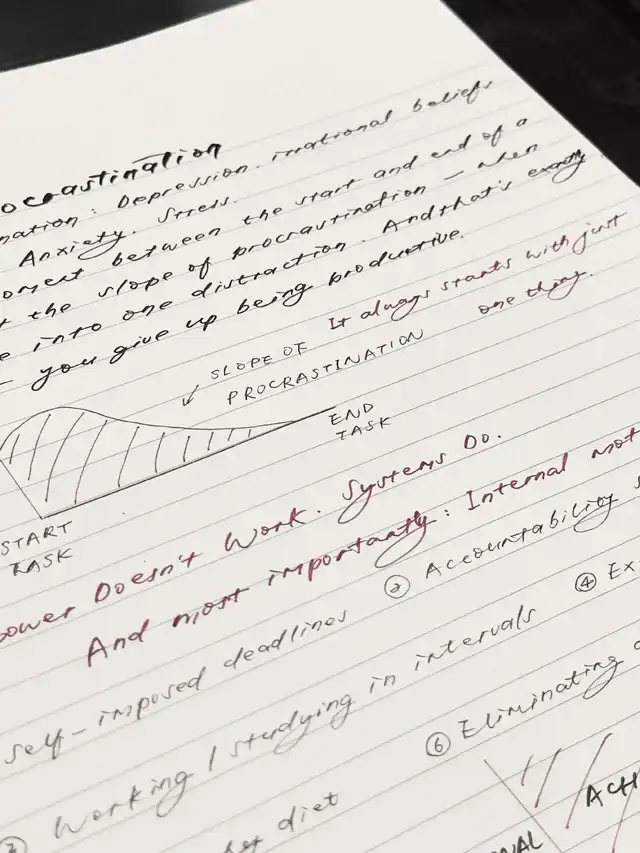 ocrastination
nation: Depression. irrational beliefs
Anxiety. Stress.
oment between the start and end of a
t the slope of procrastination – when
e into one distraction. And that's exactly
– you give up being productive.
It always starts with just
one thing.
SLOPE OF
PROCRASTINATION
END
TASK
START
TASK
power Doesn't Work. Systems Do.
And most importantly: Internal mot
self-imposed deadlines
② Accountability s
③ Working / studying in intervals
④ Ex
diet
⑥ Eliminating
ACH
NAL